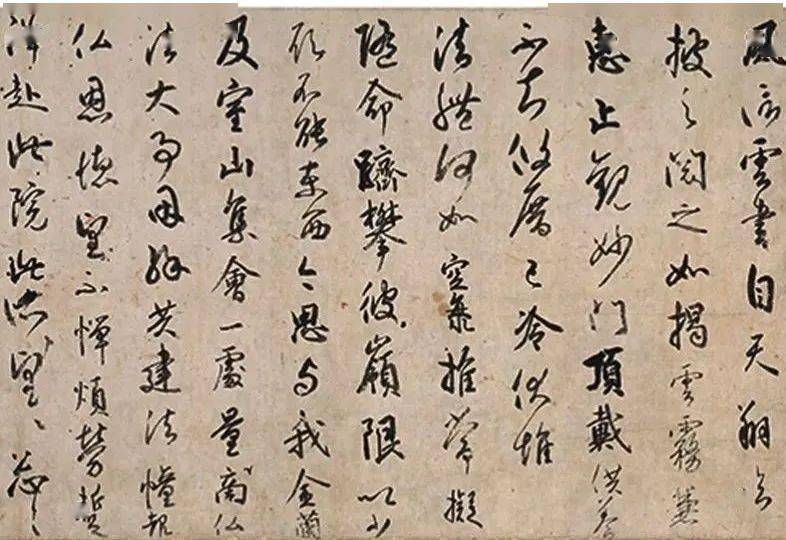 風信雲書自天翔臨
披之閲之如揭雲霧兼
惠止觀妙門頂戴供養
不知攸厝已冷伏惟
法體何如空海推常擬
隨命躋攀彼嶺限以少
願不能東西今思与我金蘭
及室山集會一處量商仏
法大事因縁共建法幢報
仏恩徳望不憚煩勞蹔
降赴此院此所望々忩々